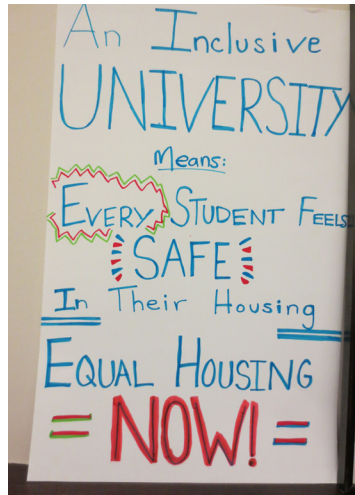 An Inclusive
UNIVERSITY
Means:
EVERY STUDENT FEELS
SAFE
In Their Housing
EQUAL HOUSING
= NOW! =